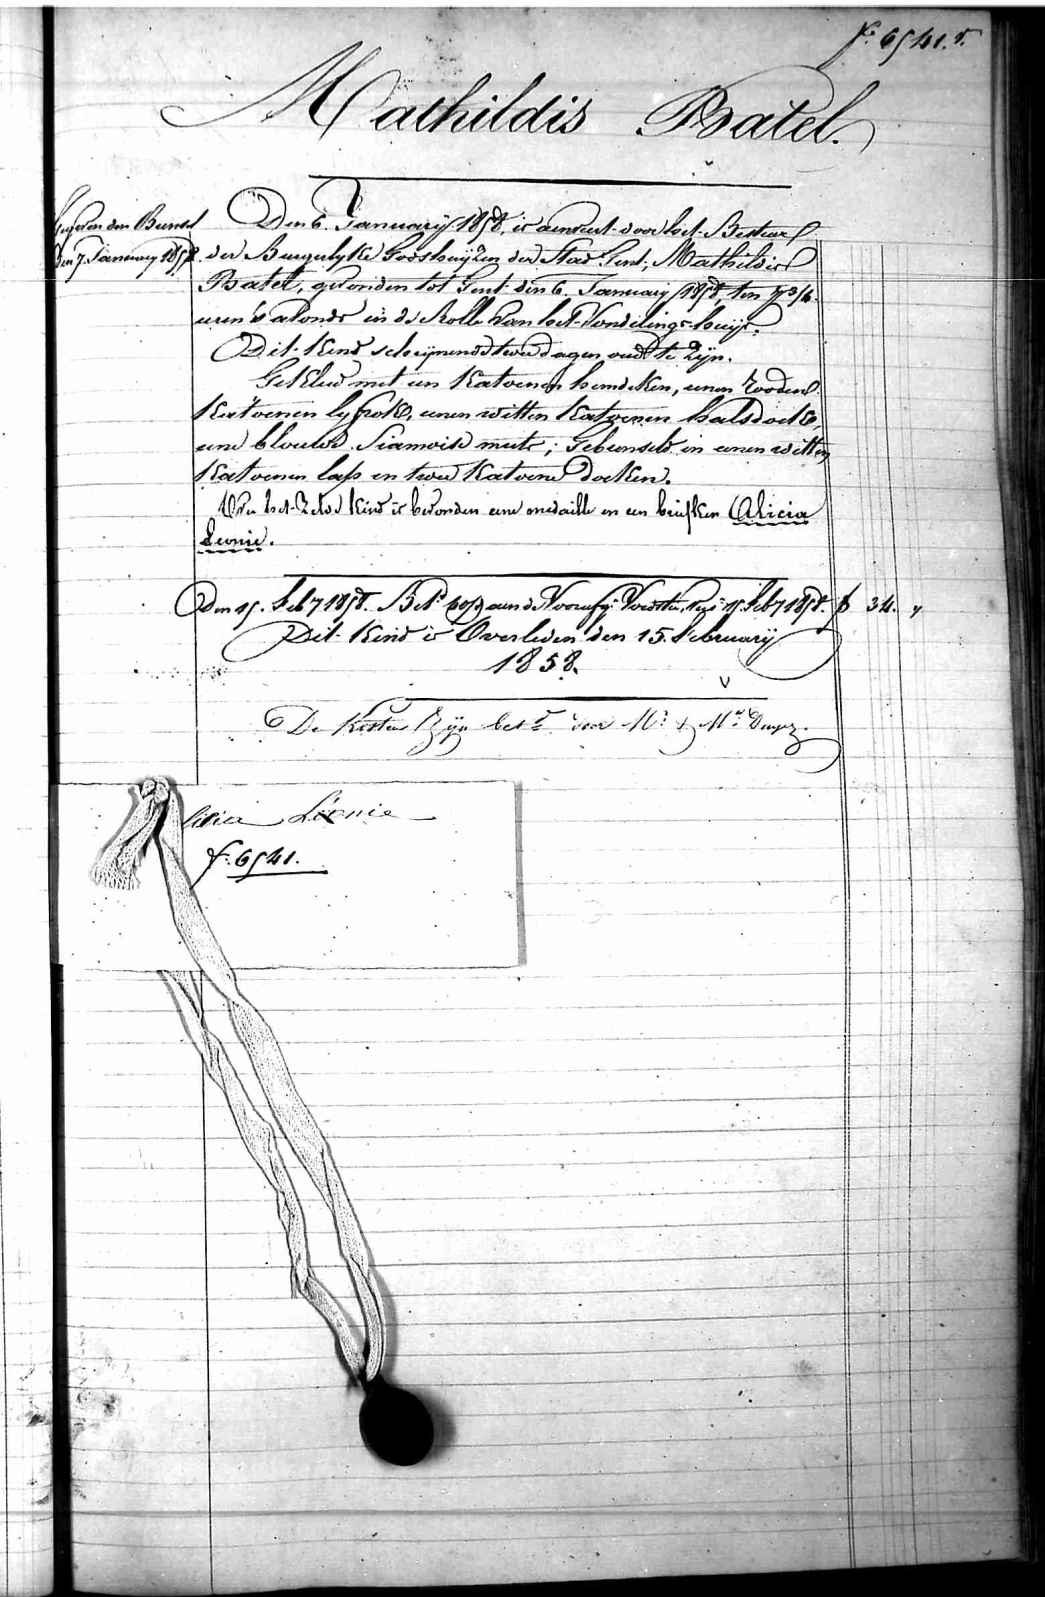 f. 6541. r.
Mathildis Batel.
Gegeven den Bunsel
den 7. January 1858
Den 6. January 1858, is aenveert door het Bestuer
der Burgelyke Godshuijzen der Stad Gent, Mathildis
Batel, gevonden tot Gent den 6. January 1858, ten 7 3/4
uren 's avonds in de Rolle van het Vondelings-huijs.
Dit Kind scheijnende twee dagen oud te zijn.
Gekleed met een Katoenen hemdeken, eenen rooden
Katoenen lyfrok, eenen witten Katoenen halsdoek,
eene blauwe Siamoise muts; Gebunseld in eenen witten
Katoenen lap en twee Katoene doeken.
By het zelve Kind is bevonden eene medaille en een briefken (Alicia
Leonie.
Den 15. Feb 1858. Bet. aen de Voorsten, 15 Feb 1858. f 34. "
Dit Kind is Overleden den 15. February
1858.
De Kosten zijn bet. door Mr. & Me
licia Léonie
f. 6541.